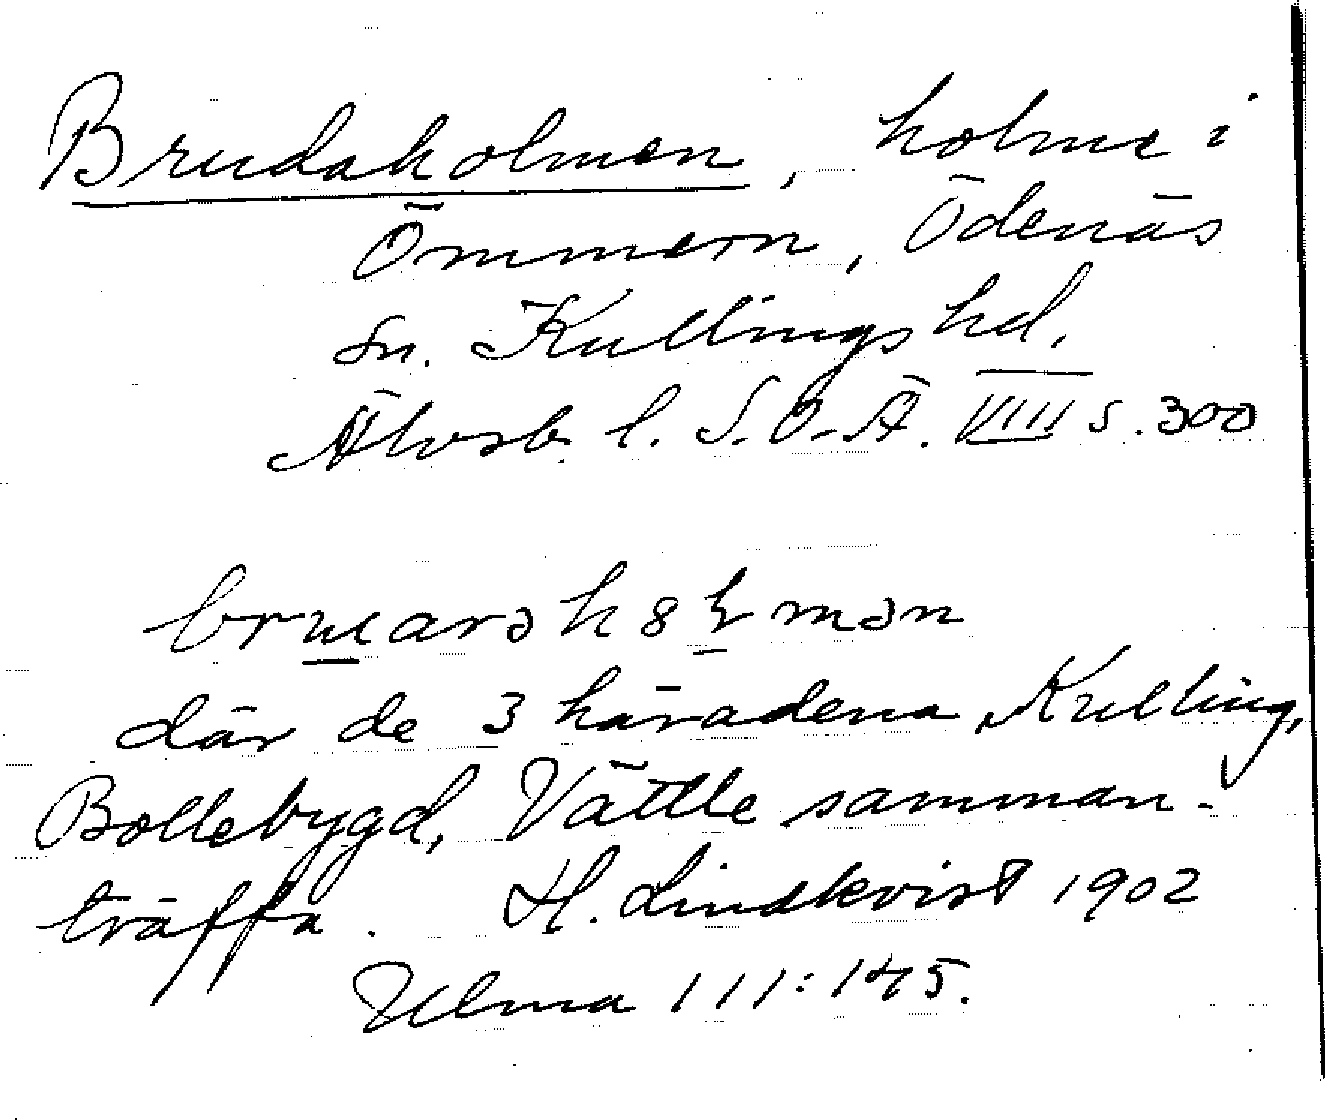 Brudaholmen, holme i
Ömmern, Ödenäs
sn. Kullings hd.
Älvsb. l. S.O.Ä. VIII s. 300
där de 3 häradena Kulling,
Bollebygd, Vättle samman-
träffa. H. Lindkvist 1902
Ulma 111:145.